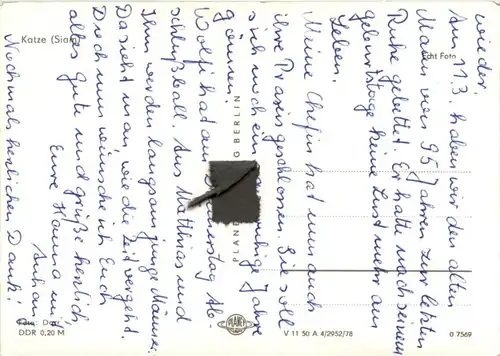 wieder.
Am 11.3. haben wir den alten
Mann von 95 Jahren zur letzten
Ruhe gebettet. Er hatte nach seinem
Geburtstage keine Lust mehr am
Leben.
Meine Chefin hat nun auch
ihre Praxis geschlossen. Sie soll
sich noch ein paar ruhige Jahre
gönnen.
Wolfi hat am Donnerstag Ab-
schlußball. Aus Matthias und
Ihm werden langsam junge Männer.
Da sieht man, wie die Zeit vergeht.
Doch nun wünsche ich Euch
alles Gute und grüße herzlich,
Eure Hanna und
Anhang
Nochmals herzlichen Dank!
Katze (Siam)
Echt Foto
PLAN
G BERLIN
PLANET
Foto: D
DDR 0,20 M
V 11 50 A 4/2952/78
07569